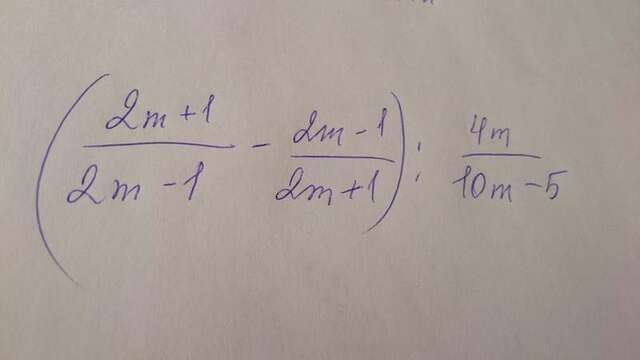 (2m+1/2m-1 - 2m-1/2m+1) : 4m/10m-5